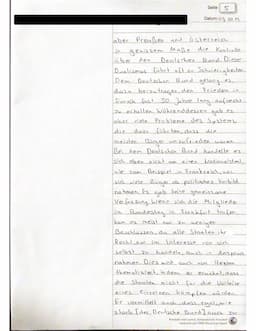 Seite 5
Datum
aber Preußen und Österreich
in gewissem Maße die Kontrolle
über den Deutschen Bund. Dieser
Dualismus führt oft zu Schwierigkeiten.
Dem Deutschen Bund gelang es
dazu beizutragen den Frieden in
Europa fast 50 Jahre lang aufrecht
zu erhalten. Währenddessen gab es
aber viele Probleme des Systems,
die dazu führten, dass die
meisten Bürger unzufrieden waren.
Bei dem Deutschen Bund handelte es
sich eben nicht um einen Nationalstaat,
wie zum Beispiel in Frankreich, was
sich viele Bürger als politisches Vorbild
nahmen. Es gab keine gemeinsame
Verfassung. Wenn sich die Mitglieder
im Bundestag in Frankfurt trafen,
kam es meist nur zu wenigen
Beschlüssen, da alle Staaten ihr
Recht, nur im Interesse von sich
selbst zu handeln, auch in Anspruch
nahmen. Dies wird auch von Heeren
thematisiert, indem er erwähnt, dass
die Staaten nicht für die Vorteile
eines Einzelnen kämpfen würden.
Er vermittelt auch, dass, egal, wie
stark [der Deutsche Bund] auch zu